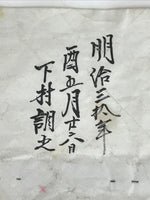 明治三拾年
酉五月廿八日
下村朔之